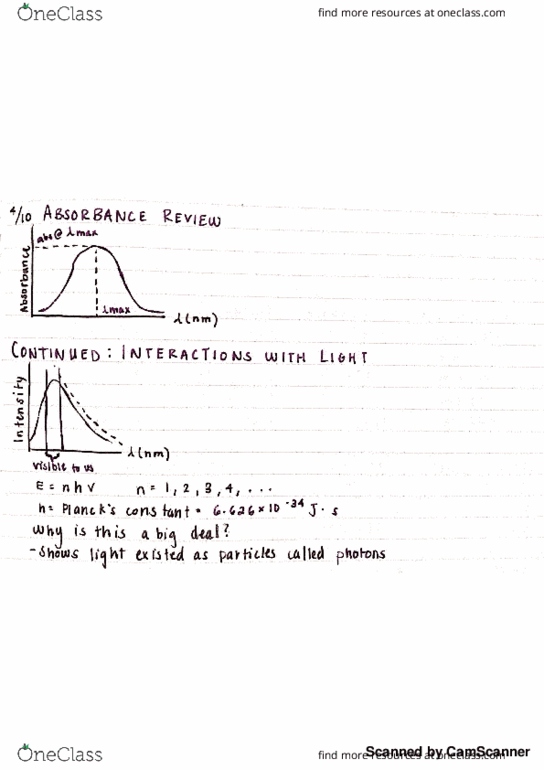 OneClass
find more resources at oneclass.com
4/10 ABSORBANCE REVIEW
abs @ λmax
Absorbance
λmax
λ(nm)
CONTINUED: INTERACTIONS WITH LIGHT
Intensity
λ(nm)
visible to us
E = nhν n = 1, 2, 3, 4, ...
h = Planck's constant = 6.626 × 10 -34 J · s
Why is this a big deal?
- Shows light existed as particles called photons
OneClass
find more resources at oneclass.com
Scanned by CamScanner